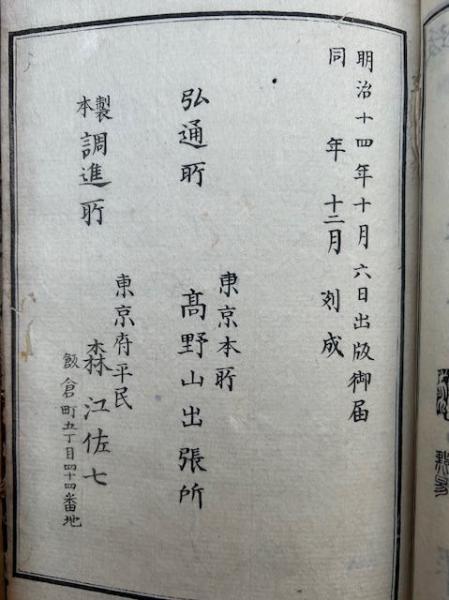 明治十四年十月六日出版御届
同年十二月刻成
弘通所
東京本所
高野山出張所
製本調進所
東京府平民
森江佐七
飯倉町五丁目四十四番地